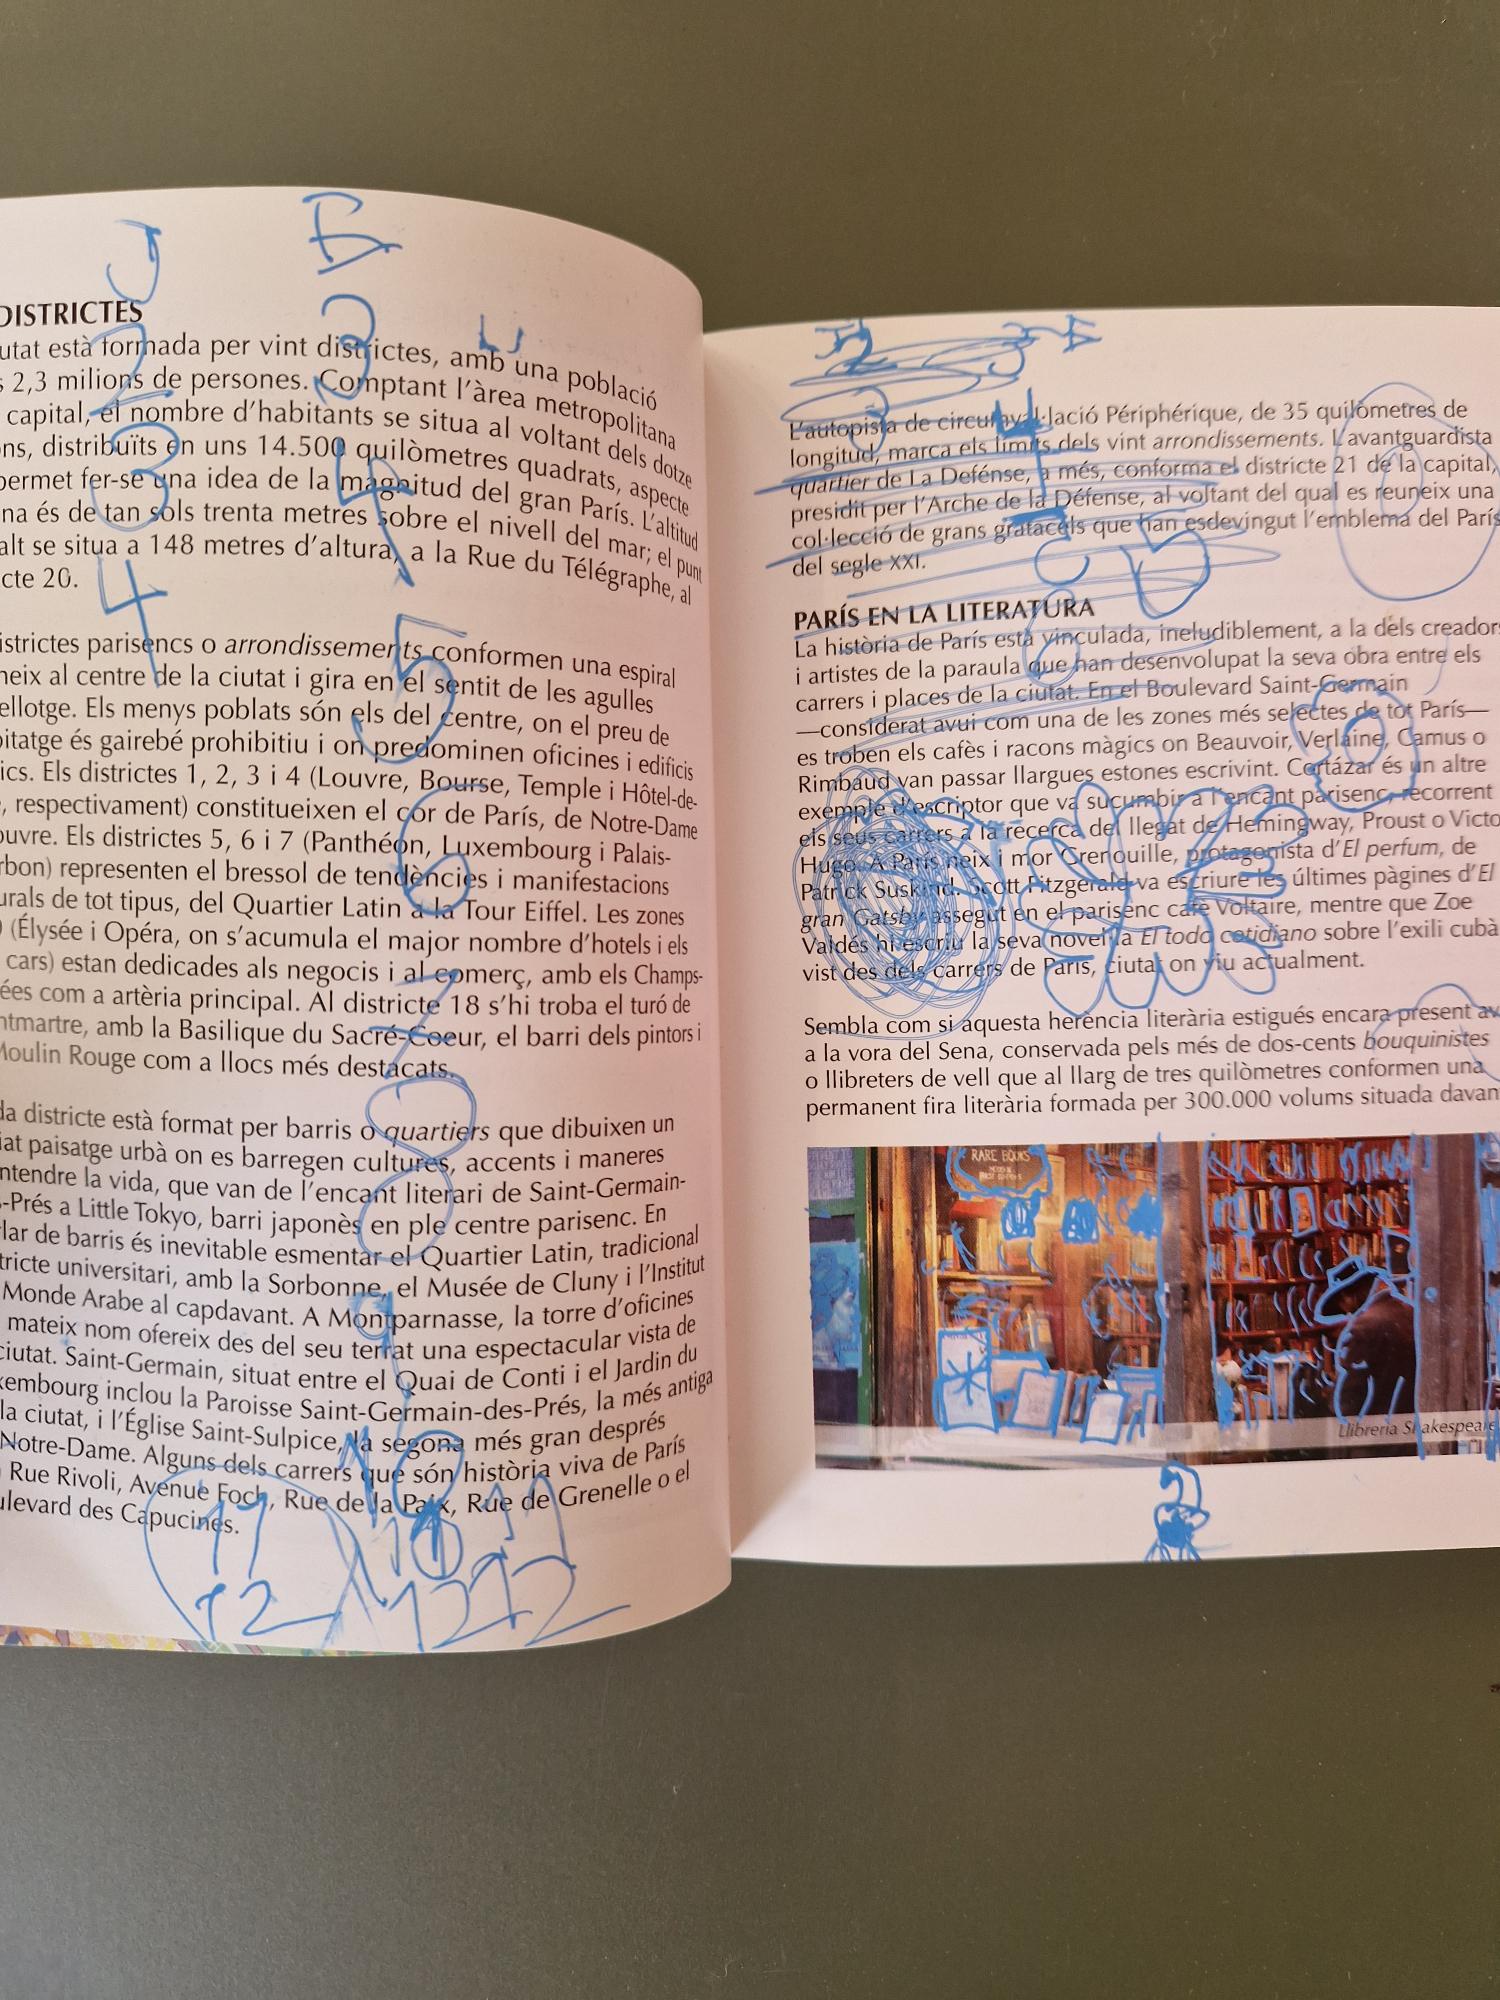 DISTRICTES
utat està formada per vint districtes, amb una població
s 2,3 milions de persones. Comptant l'àrea metropolitana
capital, el nombre d'habitants se situa al voltant dels dotze
ns, distribuïts en uns 14.500 quilòmetres quadrats, aspecte
permet fer-se una idea de la magnitud del gran París. L'altitud
na és de tan sols trenta metres sobre el nivell del mar; el punt
alt se situa a 148 metres d'altura, a la Rue du Télégraphe, al
cte 20.
istrictes parisencs o arrondissements conformen una espiral
neix al centre de la ciutat i gira en el sentit de les agulles
ellotge. Els menys poblats són els del centre, on el preu de
bitatge és gairebé prohibitiu i on predominen oficines i edificis
ics. Els districtes 1, 2, 3 i 4 (Louvre, Bourse, Temple i Hôtel-de-
, respectivament) constitueixen el cor de París, de Notre-Dame
ouvre. Els districtes 5, 6 i 7 (Panthéon, Luxembourg i Palais-
rbon) representen el bressol de tendències i manifestacions
urals de tot tipus, del Quartier Latin a la Tour Eiffel. Les zones
) (Élysée i Opéra, on s'acumula el major nombre d'hotels i els
cars) estan dedicades als negocis i al comerç, amb els Champs-
ées com a artèria principal. Al districte 18 s'hi troba el turó de
ntmartre, amb la Basilique du Sacré-Coeur, el barri dels pintors i
Moulin Rouge com a llocs més destacats.
da districte està format per barris o quartiers que dibuixen un
iat paisatge urbà on es barregen cultures, accents i maneres
ntendre la vida, que van de l'encant literari de Saint-Germain-
s-Prés a Little Tokyo, barri japonès en ple centre parisenc. En
lar de barris és inevitable esmentar el Quartier Latin, tradicional
tricte universitari, amb la Sorbonne, el Musée de Cluny i l'Institut
Monde Arabe al capdavant. A Montparnasse, la torre d'oficines
mateix nom ofereix des del seu terrat una espectacular vista de
ciutat. Saint-Germain, situat entre el Quai de Conti i el Jardin du
xembourg inclou la Paroisse Saint-Germain-des-Prés, la més antiga
la ciutat, i l'Église Saint-Sulpice, la segona més gran després
Notre-Dame. Alguns dels carrers que són història viva de París
Rue Rivoli, Avenue Foch, Rue de la Paix, Rue de Grenelle o el
ulevard des Capucines.
J
2
3
4
3
4
5
6
7
8
9
10
11
12
11
12 12
L'autopista de circumval·lació Périphérique, de 35 quilòmetres de
longitud, marca els límits dels vint arrondissements. L'avantguardista
quartier de La Defénse, a més, conforma el districte 21 de la capital,
presidit per l'Arche de la Défense, al voltant del qual es reuneix una
col·lecció de grans gratacels que han esdevingut l'emblema del París
del segle XXI.
PARÍS EN LA LITERATURA
La història de París està vinculada, ineludiblement, a la dels creadors
i artistes de la paraula que han desenvolupat la seva obra entre els
carrers i places de la ciutat. En el Boulevard Saint-Germain
—considerat avui com una de les zones més selectes de tot París—
es troben els cafès i racons màgics on Beauvoir, Verlaine, Camus o
Rimbaud van passar llargues estones escrivint. Cortázar és un altre
exemple d'escriptor que va sucumbir a l'encant parisenc, recorrent
els seus carrers a la recerca del llegat de Hemingway, Proust o Victo
Hugo. A París neix i mor Grenouille, protagonista d'El perfum, de
Patrick Suskind. Scott Fitzgerald va escriure les últimes pàgines d'El
gran Gatsby assegut en el parisenc cafè Voltaire, mentre que Zoe
Valdés hi escriu la seva novel·la El todo cotidiano sobre l'exili cubà
vist des dels carrers de París, ciutat on viu actualment.
Sembla com si aquesta herència literària estigués encara present av
a la vora del Sena, conservada pels més de dos-cents bouquinistes
o llibreters de vell que al llarg de tres quilòmetres conformen una
permanent fira literària formada per 300.000 volums situada davan
RARE BOOKS
Llibreria Shakespeare